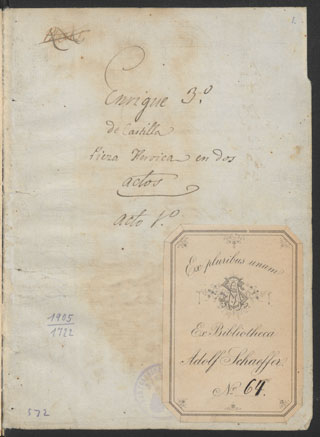 Enrique 3.º
de Castilla
Pieza Heroica en dos
actos
acto 1.º
Ex pluribus unum
Ex Bibliotheca
Adolf Schaeffer.
No. 64.
1905
1722
572